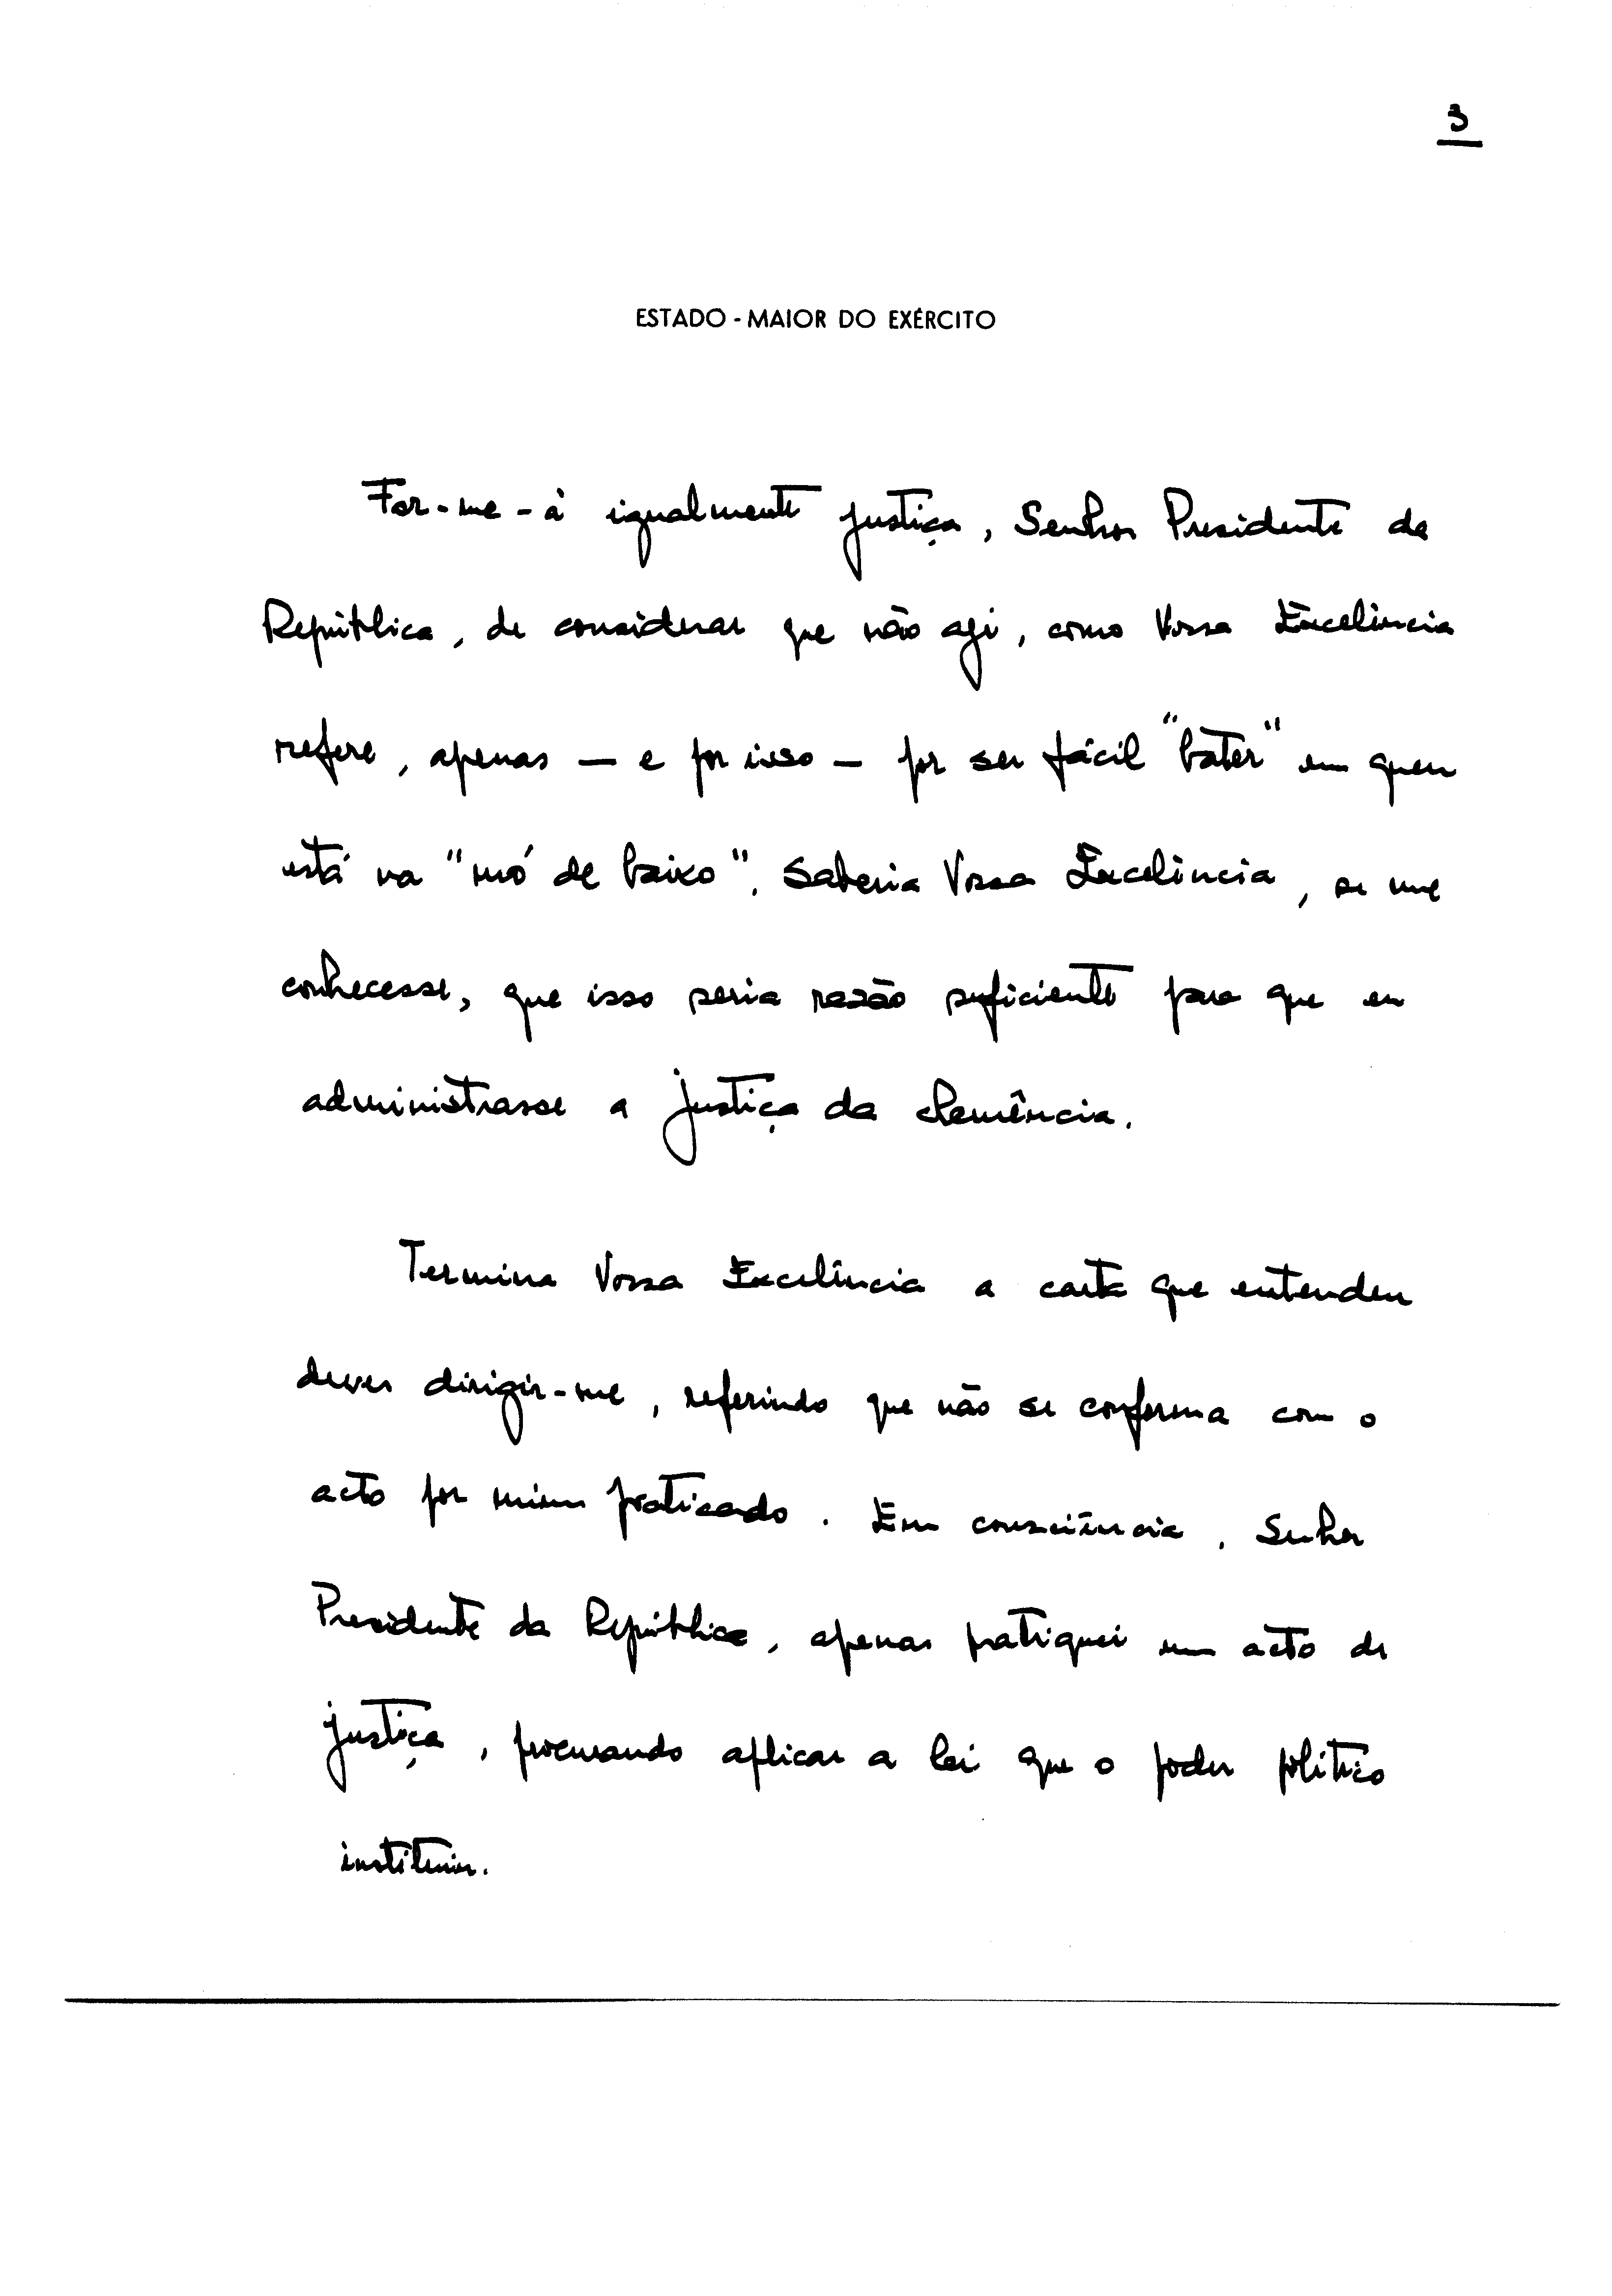 3
ESTADO - MAIOR DO EXÉRCITO
Far-me-á igualmente justiça, Senhor Presidente da
República, de considerar que não agi, como Vossa Excelência
refere, apenas — e por isso — por ser fácil "bater" em quem
está na "mó de baixo". Saberia Vossa Excelência, se me
conhecesse, que isso seria razão suficiente para que eu
administrasse a justiça da clemência.
Termina Vossa Excelência a carta que entendeu
dever dirigir-me, referindo que não se conforma com o
acto por mim praticado. Em consciência, Senhor
Presidente da República, apenas pratiquei um acto de
justiça, procurando aplicar a lei que o poder político
instituiu.